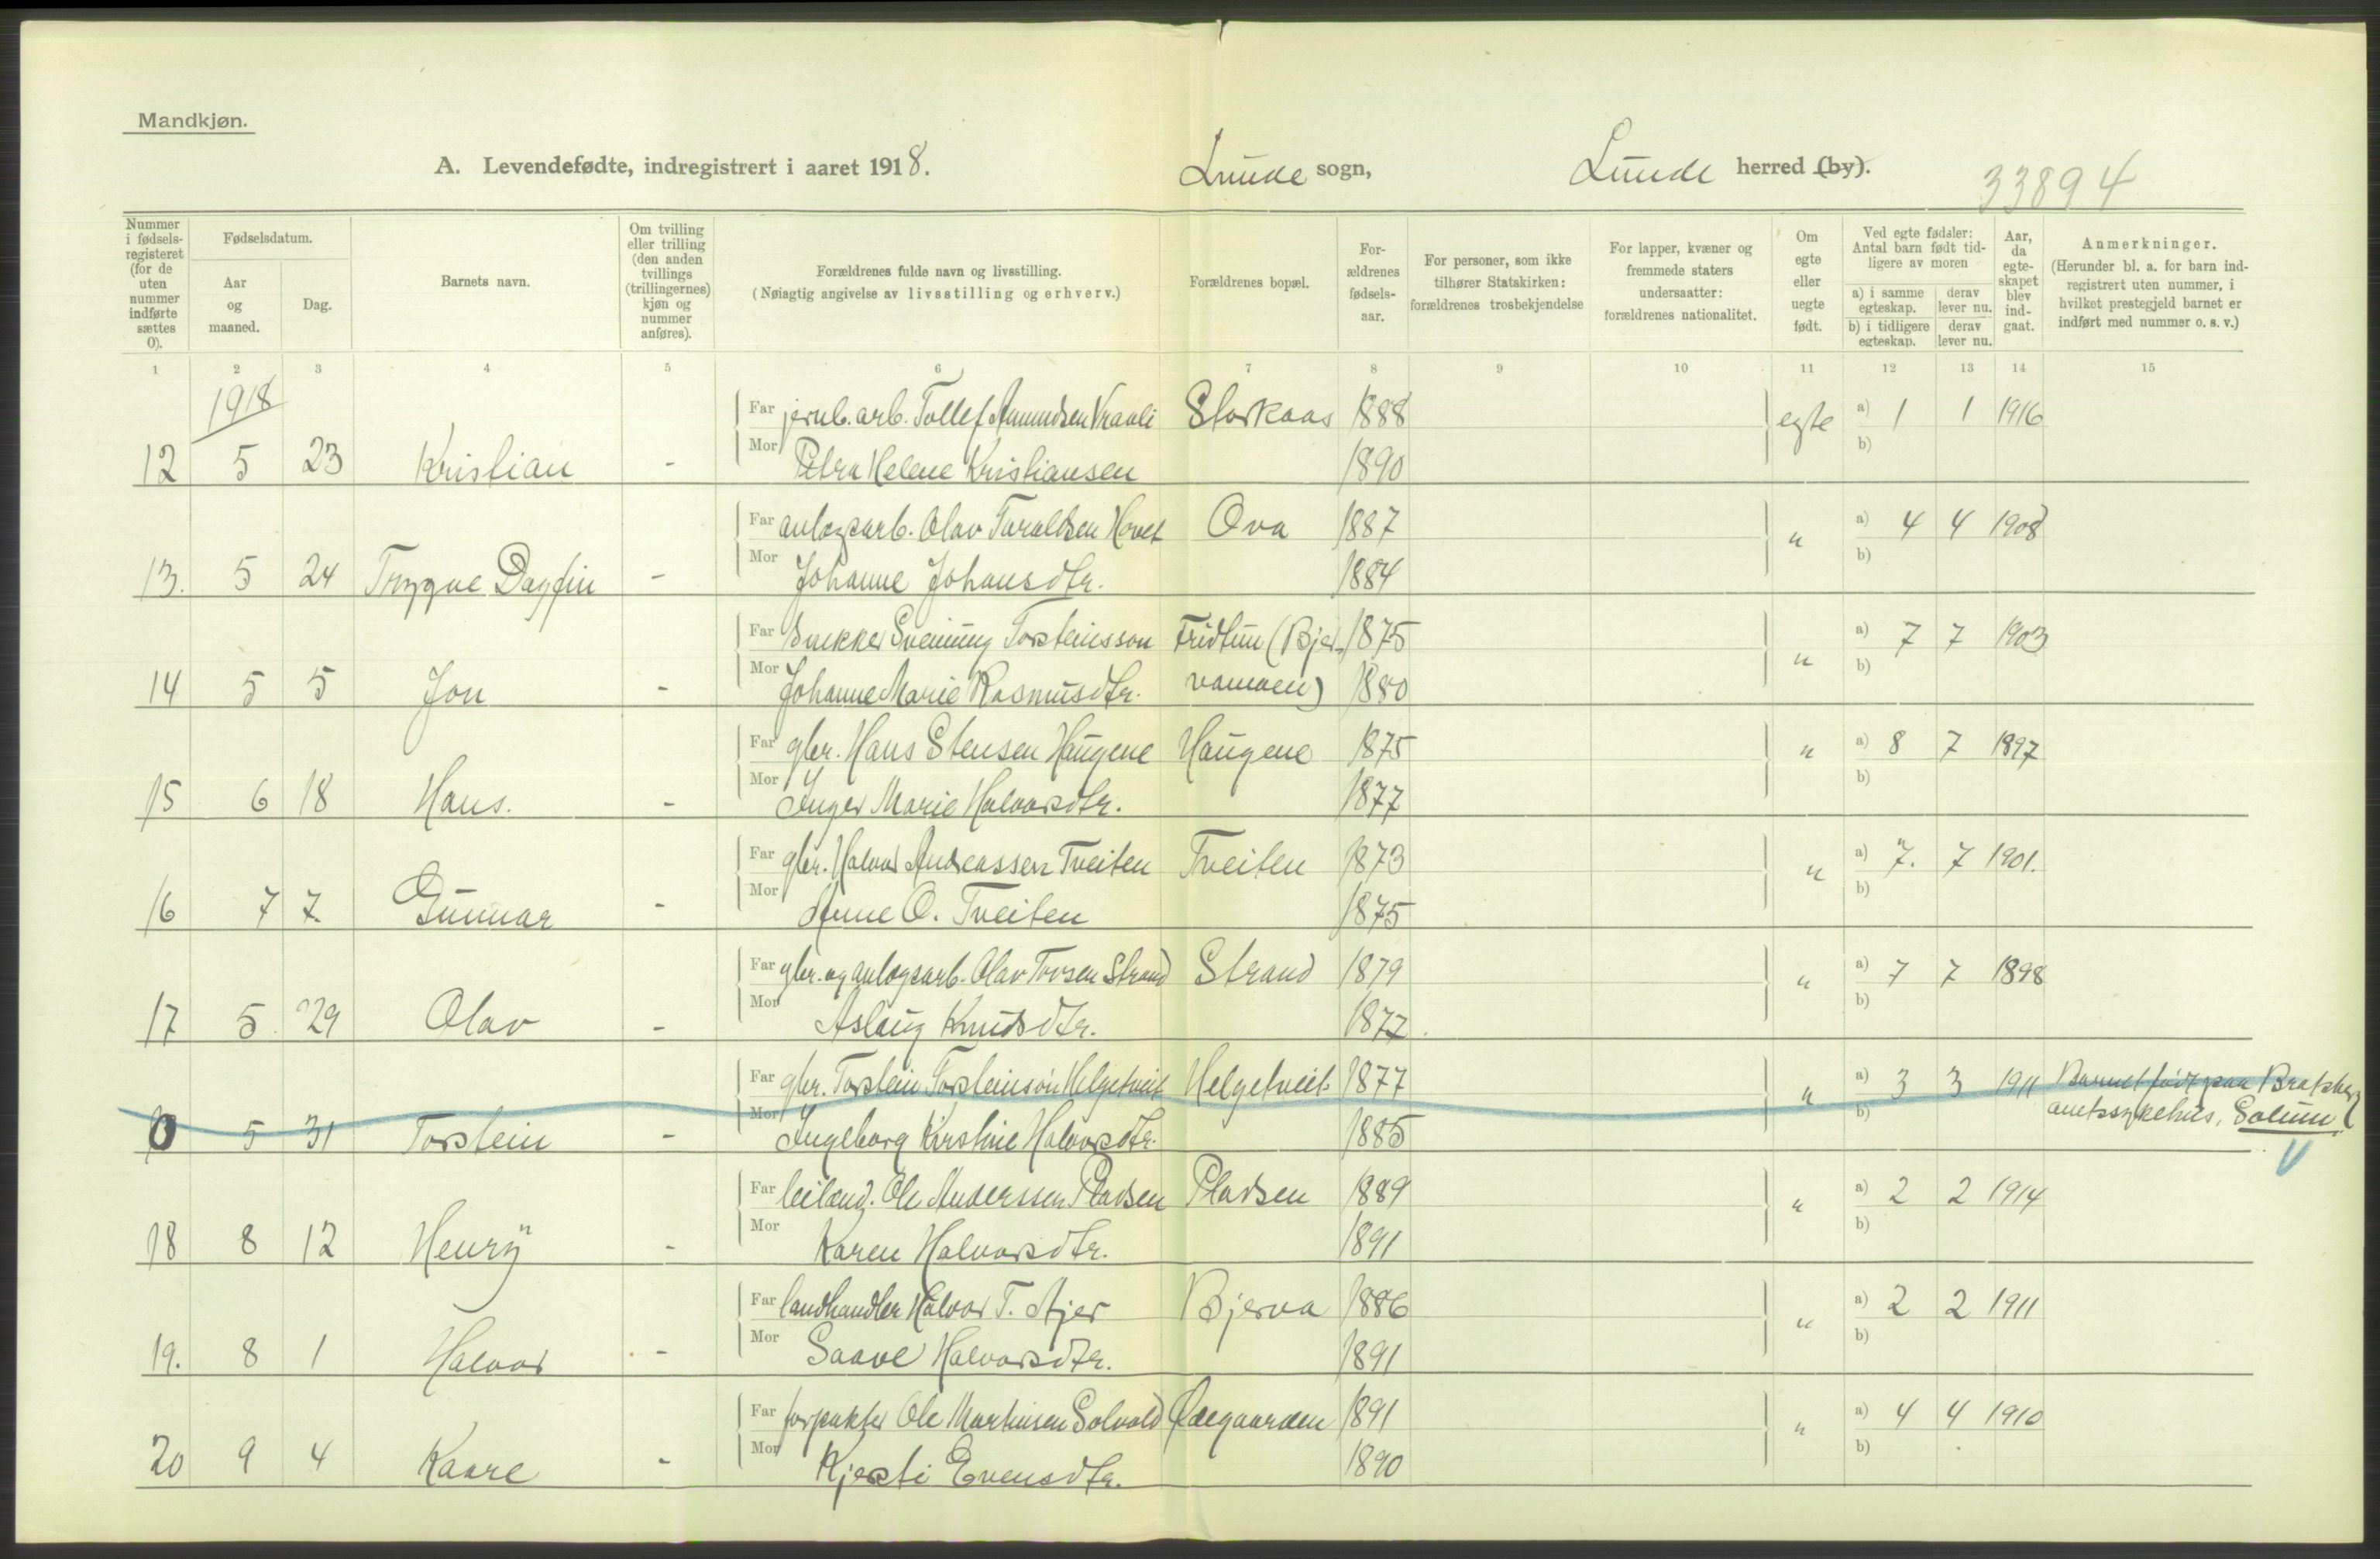 Mandkjøn.
A. Levendefødte, indregistrert i aaret 1918. Lunde sogn, Lunde herred (by). 33894
Nummer i fødsels-registeret (for de uten nummer indførte sættes 0).
Fødselsdatum.
Aar og maaned.
Dag.
Barnets navn.
Om tvilling eller trilling (den anden tvillings (trillingernes) kjøn og nummer anføres).
Forældrenes fulde navn og livsstilling.
(Nøiagtig angivelse av livsstilling og erhverv.)
Forældrenes bopæl.
For-ældrenes fødsels-aar.
For personer, som ikke tilhører Statskirken: forældrenes trosbekjendelse
For lapper, kvæner og fremmede staters undersaatter: forældrenes nationalitet.
Om egte eller uegte født.
Ved egte fødsler: Antal barn født tid-ligere av moren
a) i samme egteskap.
derav lever nu.
b) i tidligere egteskap.
derav lever nu.
Aar, da egte-skapet blev ind-gaat.
Anmerkninger.
(Herunder bl. a. for barn ind-registrert uten nummer, i hvilket prestegjeld barnet er indført med nummer o. s. v.)
1 2 3 4 5 6 7 8 9 10 11 12 13 14 15
1918
Far jernb.arb. Tollef Amundsen Vraali Storkaas 1888 egte a) 1 1 1916
12 5 23 Kristian - Mor Petra Helene Kristiansen 1890 b)
Far anlægsarb. Olav Taraldsen Hovet Ova 1887 " a) 4 4 1908
13. 5 24 Trygve Dagfin - Mor Johanne Johansdtr. 1884 b)
Far Snekker Sveinung Torsteinsson Fridtun (Bjer- 1875 " a) 7 7 1903
14 5 5 Jon - Mor Johanne Marie Rasmusdtr. vamoen) 1880 b)
Far gbr. Hans Stensen Haugene Haugene 1875 " a) 8 7 1897
15 6 18 Hans. - Mor Inger Marie Halvorsdtr. 1877 b)
Far gbr. Halvor Andreassen Tveiten Tveiten 1873 " a) 7. 7 1901.
16 7 7. Gunnar - Mor Anne O. Tveiten 1875 b)
Far gbr. og anlægsarb. Olav Tovsen Strand Strand 1879 " a) 7 7 1898
17 5 29 Olav - Mor Aslaug Knudsdtr. 1877 b)
Far gbr. Torstein Torsteinson Helgetveit Helgetveit 1877 " a) 3 3 1911 Barnet født paa Bratsberg
0 5 31 Torstein - Mor Ingeborg Kirstine Halvorsdtr. 1885 b) amtssykehus, Solum
Far leilænd. Ole Anderssen Pladsen Pladsen 1889 " a) 2 2 1914
18 8 12 Henry - Mor Karen Halvorsdtr. 1891 b)
Far landhandler Halvor T. Ajer Bjerva 1886 " a) 2 2 1911
19. 8 1 Halvor - Mor Saave Halvorsdtr. 1891 b)
Far forpakter Ole Martinsen Solvold Ødegaarden 1891 " a) 4 4 1910
20 9 4 Kaare - Mor Kjersti Evensdtr. 1890 b)